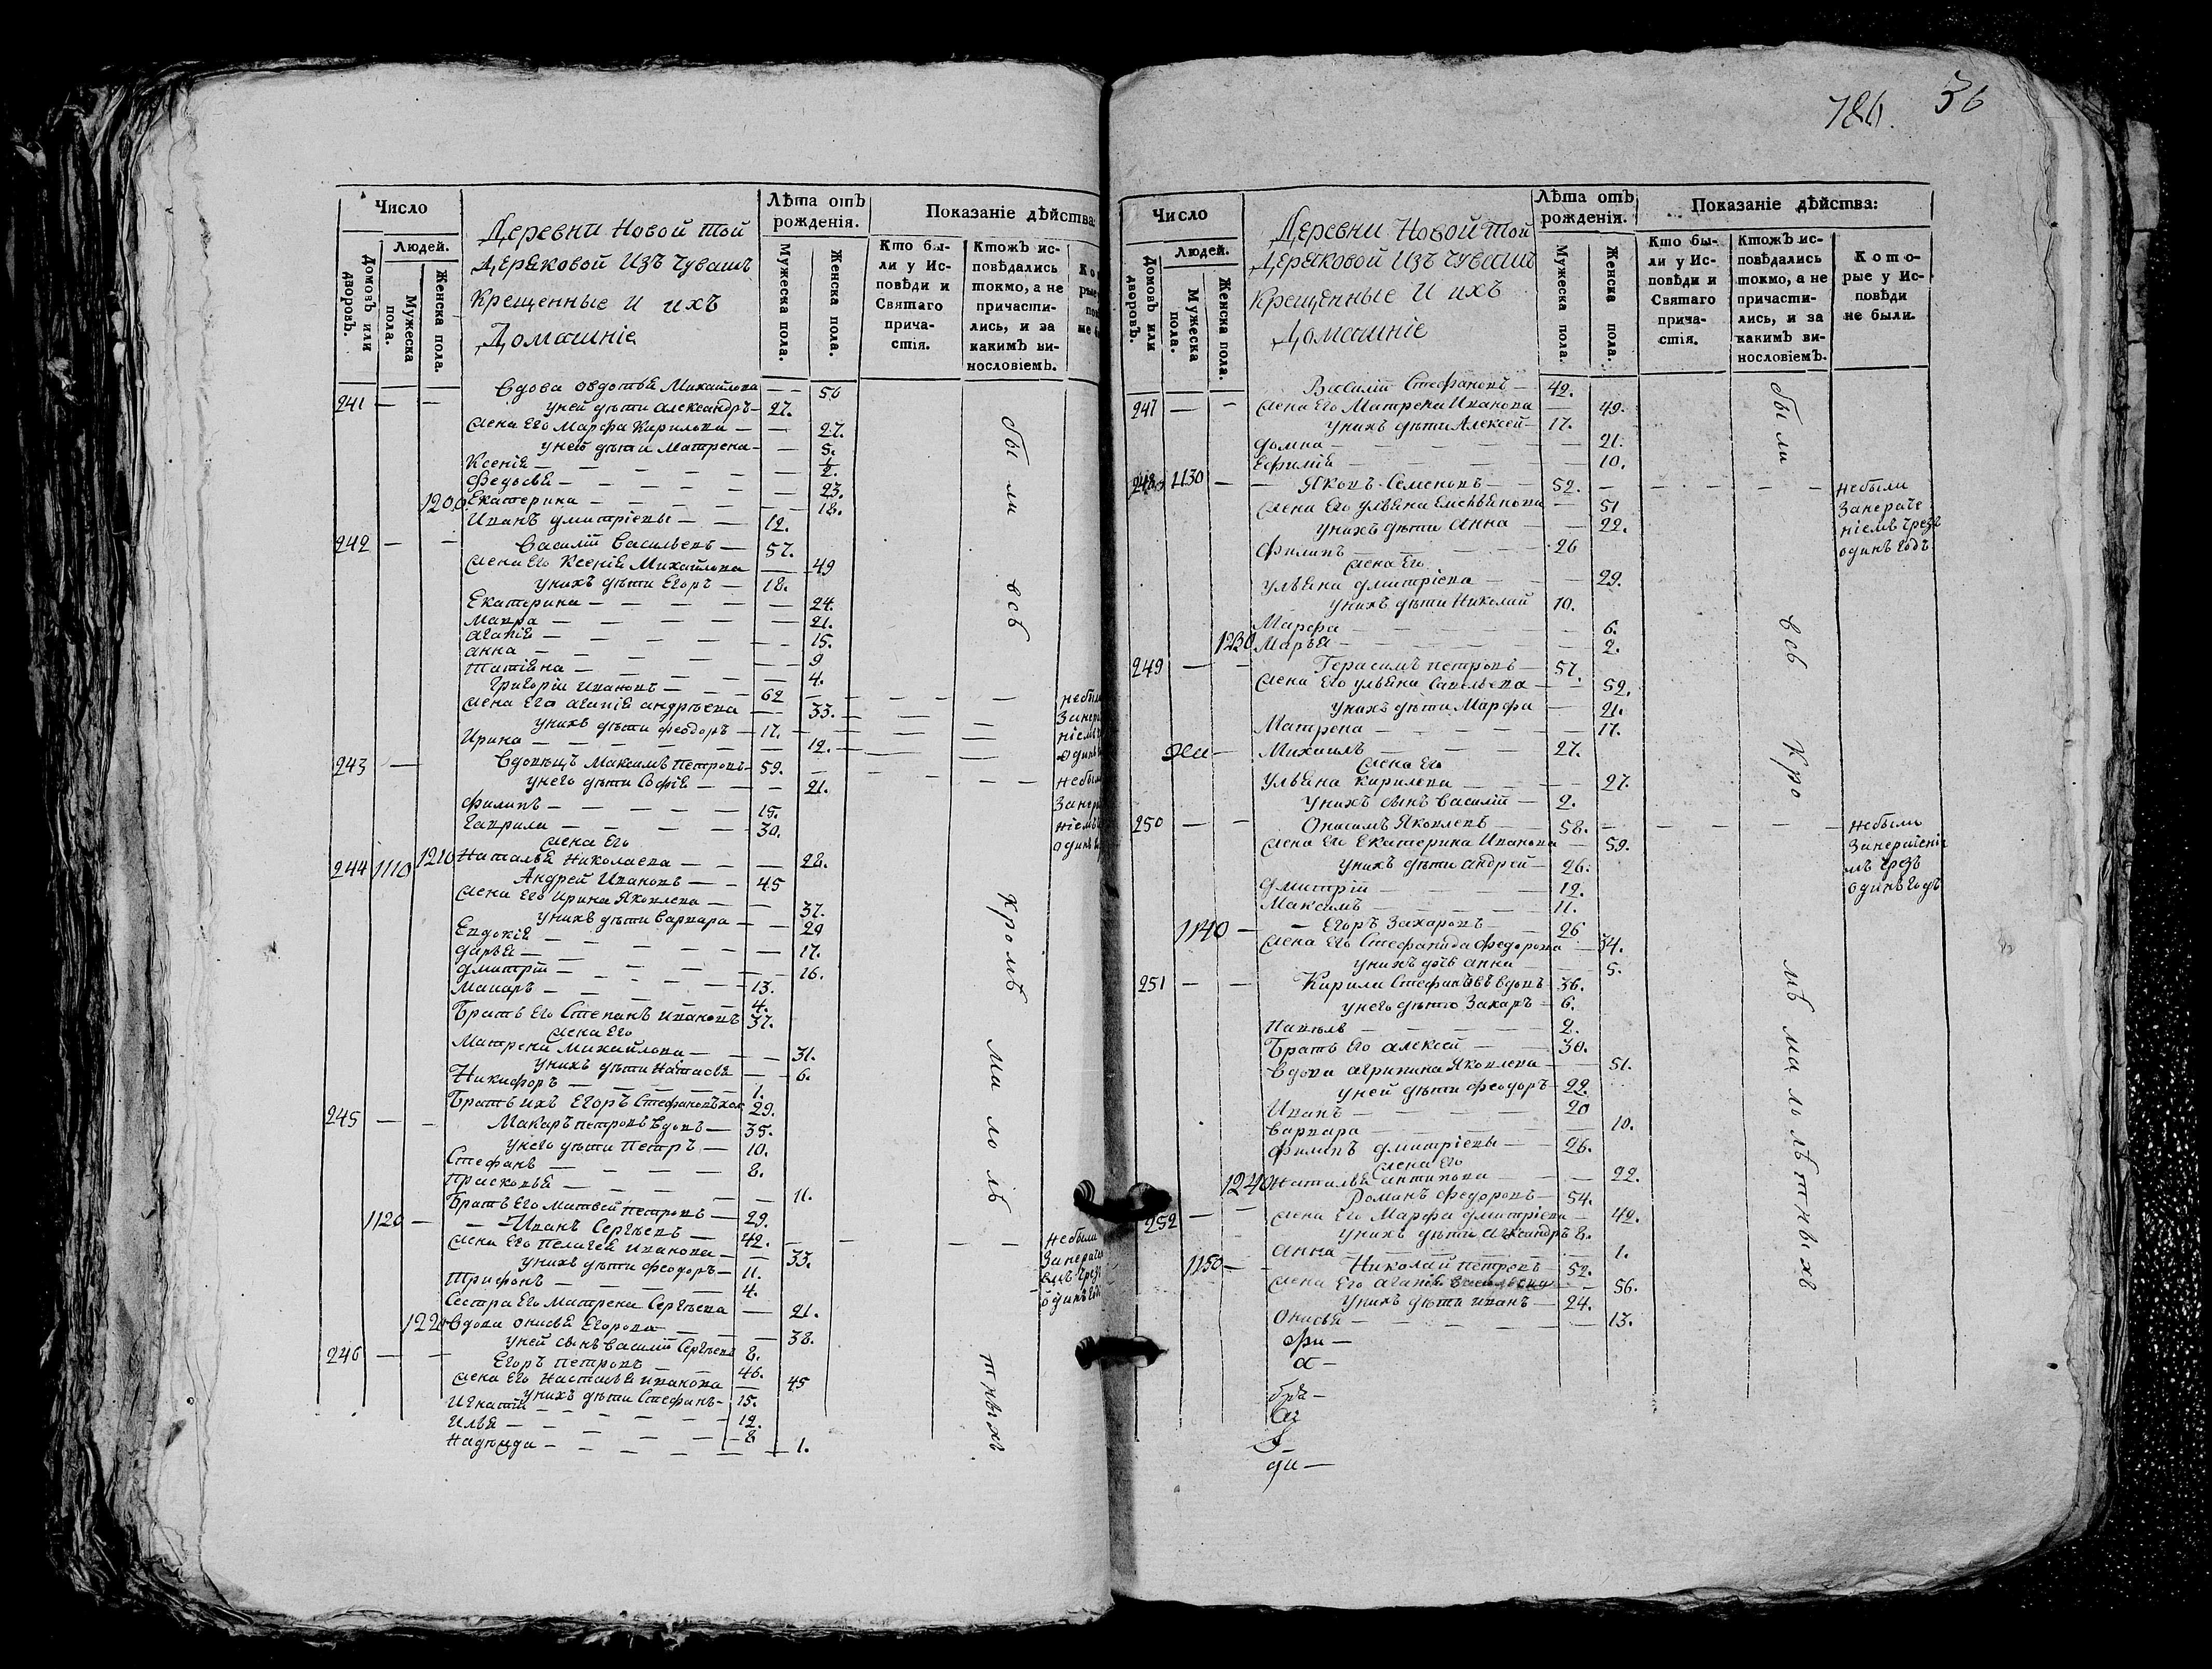 Число
Людей.
Домовъ или дворовъ.
Мужеска пола.
Женска пола.
Деревни Новой той
Деряковой Изъ Чувашъ
Крещенные И ихъ
Домашніе
Лѣта отъ рожденія.
Мужеска пола.
Женска пола.
Показаніе дѣйства:
Кто бы-
ли у Ис-
повѣди и
Святаго
прича-
стія.
Ктожъ ис-
повѣдались
токмо, а не
причасти-
лись, и за
какимъ ви-
нословіемъ.
Вдова Овдотья Михайлова — — 50
241 — — уней дѣти Александръ — 27.
жена Его Марфа Кирилова — — 27.
уней дѣти Матрена — — 5.
Ксенія — — 1/2.
Федосья — — 23.
1200 Екатерина — — 18.
Иванъ Дмитріевы — — 12.
242 — — Василій Васильевъ — 57.
жена Его Ксенія Михайлова — 49
унихъ дѣти Егоръ — 18.
Екатерина — — 24.
Мавра — — 21.
Агапія — — 15.
Анна — — 9
Татіяна — — 4.
Григорій Ивановъ — — 62
жена Его Агапія Андрѣева — 33.
унихъ дѣти Феодоръ — 17.
Ирина — — 12.
243 — Вдовецъ Максимъ Петровъ — 59.
унего дѣти Софія — — 21.
Филипъ — — 15.
Гаврила — — 30.
жена Его
1210 Наталья Николаева — — 28.
244 1110 Андрей Ивановъ — — 45
жена Его Ирина Яковлева — — 37.
унихъ дѣти Варвара — — 29
Евдокія — — 17.
Дарья — — 16.
Дмитрій — — 13.
Макаръ — — 4.
Братъ Его Степанъ Ивановъ 37.
жена Его
Матрена Михайлова — — 31.
унихъ дѣти Настасья — — 6.
Никифоръ — — 1.
Братъ ихъ Егоръ Стефановъ хол 29.
245 — — Макаръ Петровъ вдовъ — 35.
унего дѣти Петръ — 10.
Стефанъ — — 8.
Прасковья — — 11.
Братъ Его Матвей Петровъ — 29.
1120 — — Иванъ Сергѣевъ — 42.
жена Его Пелагея Иванова — — 33.
унихъ дѣти Феодоръ — 11.
Трифонъ — — 4.
Сестра Его Матрена Сергѣева — 21.
1220 Вдова Онисья Егорова — — 38.
уней сынъ Василій Сергѣевъ 8.
246 — — Егоръ Петровъ — 46.
жена Его Настасья Иванова — 45
унихъ дѣти Стефанъ — 15.
Игнатій — — 12.
Илья — — 8
Надежда — — 1.
бы ли всѣ кромѣ ма ло лѣ тныхъ
небыли
одинъ
небыли
одинъ
небыли
чрезъ
одинъ
786.
36
Число
Людей.
Домовъ или дворовъ.
Мужеска пола.
Женска пола.
Деревни Новой той
Деряковой Изъ Чувашъ
Крещенные И ихъ
Домашніе
Лѣта отъ рожденія.
Мужеска пола.
Женска пола.
Показаніе дѣйства:
Кто бы-
ли у Ис-
повѣди и
Святаго
прича-
стія.
Ктожъ ис-
повѣдались
токмо, а не
причасти-
лись, и за
какимъ ви-
нословіемъ.
Кото-
рые у Ис-
повѣди
не были.
Василій Стефановъ — 42.
247 — — жена Его Матрена Иванова — 49.
унихъ дѣти Алексей — 17.
Домна — — 21.
Ефимія — — 10.
248 1130 — — Яковъ Семеновъ — 52.
жена Его Ульяна Емельянова — 51
унихъ дѣти Анна — — 22.
Филипъ — — 26
жена Его
Ульяна Дмитріева — — 29.
унихъ дѣти Николай 10.
Марфа — — 6.
1230 Марья — — 2.
249 — — Герасимъ Петровъ — 57.
жена Его Ульяна Савельева — 52.
унихъ дѣти Марфа — 21.
Матрена — — 17.
Михаилъ — — 27.
жена Его
Ульяна Кирилова — — 27.
унихъ сынъ Василій — 2.
250 — — Онисимъ Яковлевъ — 58.
жена Его Екатерина Иванова — 59.
унихъ дѣти Андрей — 26.
Дмитрій — — 12.
Максимъ — — 11.
1140 — — Егоръ Захаровъ — 26
жена Его Стефанида Федорова — 34.
унихъ дочь Анна — — 5.
251 — — Кирила Стефановъ вдовъ 36.
унего дѣти Захаръ — 6.
Павелъ — — 2.
Братъ Его Алексей — — 30.
Вдова Агрипина Яковлева — 51.
уней дѣти Феодоръ — 22.
Иванъ — — 20
Варвара — — 10.
Филипъ Дмитріевы — — 26.
жена Его
1240 Наталья Антипова — — 22.
Романъ Федоровъ — 54.
252 — — жена Его Марфа Дмитріева — 42.
унихъ дѣти Александръ 8.
Анна — — 1.
1150 — — Николай Петровъ — 52.
жена Его Агапія Васильева — 56.
унихъ дѣти Иванъ — 24.
Онисья — — 13.
фи —
а —
бра —
ди —
были всѣ Кро мѣ ма ло лѣ тныхъ
небыли
Занераче
ніемъ чрезъ
одинъ годъ
небыли
мъ чрезъ
одинъ годъ